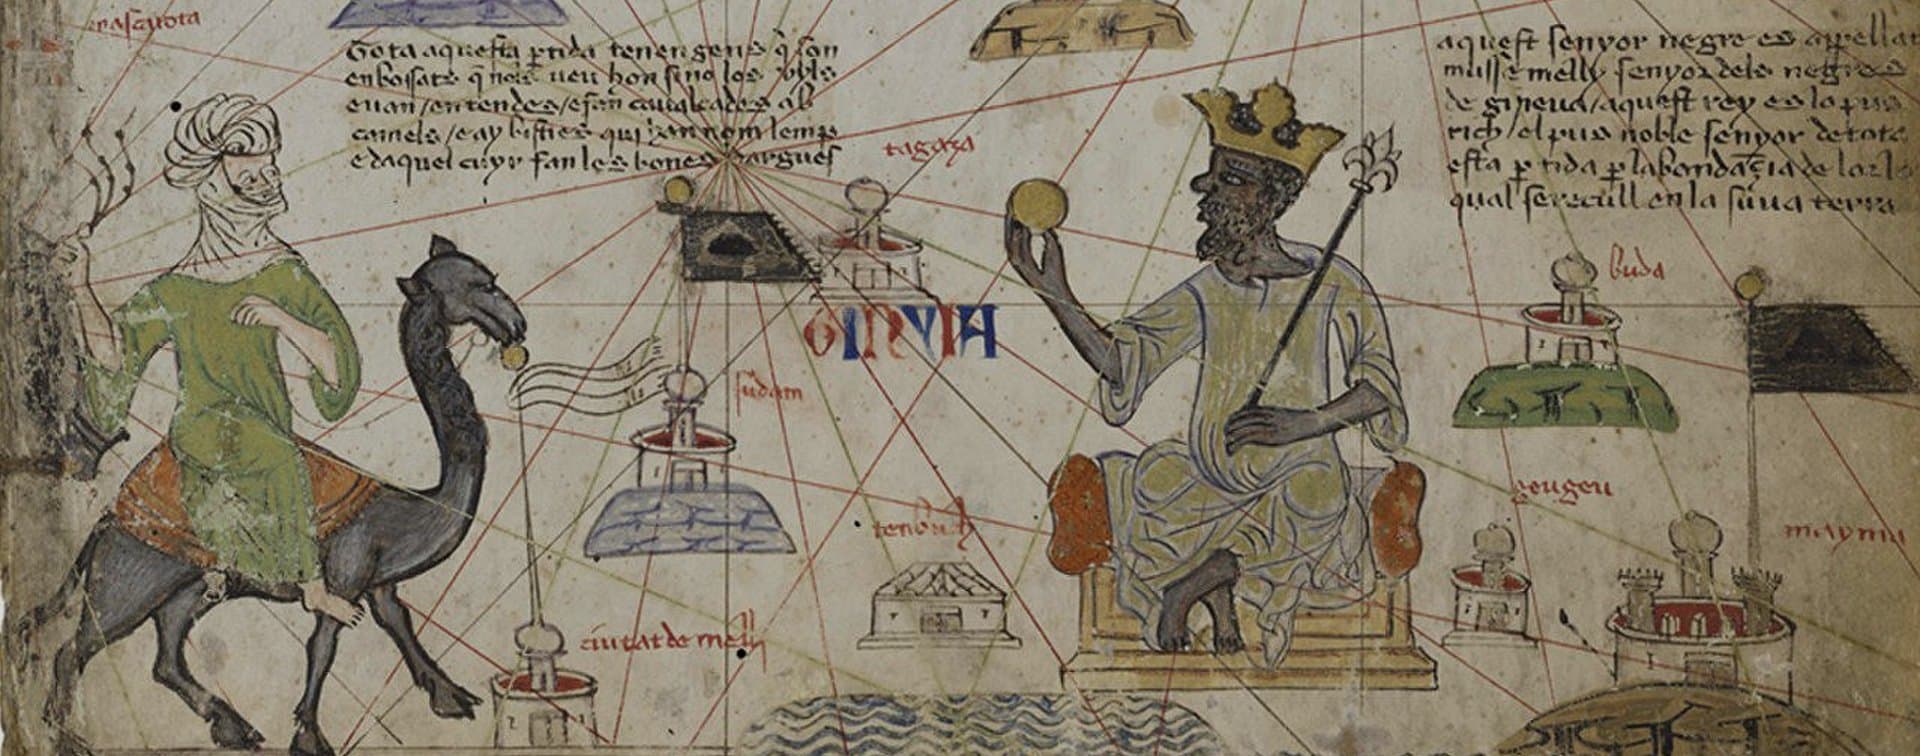 Tota aquesta ptida tenen gens q son
enbossats q nols veu hom sino los uyls
e van en tendes e fan cavalcades ab
camels e ay bisties qui han nom lemp
e daquel cuyr fan les bones dargues
aquest senyor negre es appellat
musse melly senyor dels negres
de gineva aquest rey es lo pus
rich el pus noble senyor de tota
esta ptida p labondaçia de lor lo
qual se recull en la suua terra
tagaza
buda
GINYIA
sudam
geugeu
tenbuch
mayma
ciutat de melly